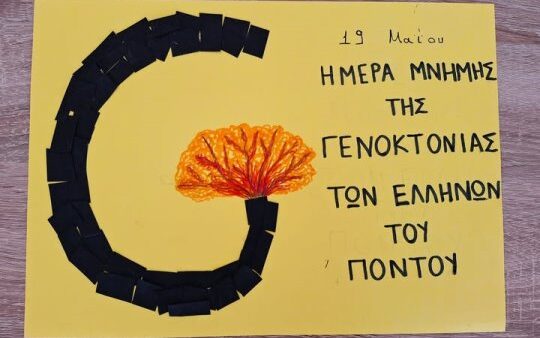 19 Μαΐου
ΗΜΕΡΑ ΜΝΗΜΗΣ
ΤΗΣ
ΓΕΝΟΚΤΟΝΙΑΣ
ΤΩΝ ΕΛΛΗΝΩΝ
ΤΟΥ
ΠΟΝΤΟΥ